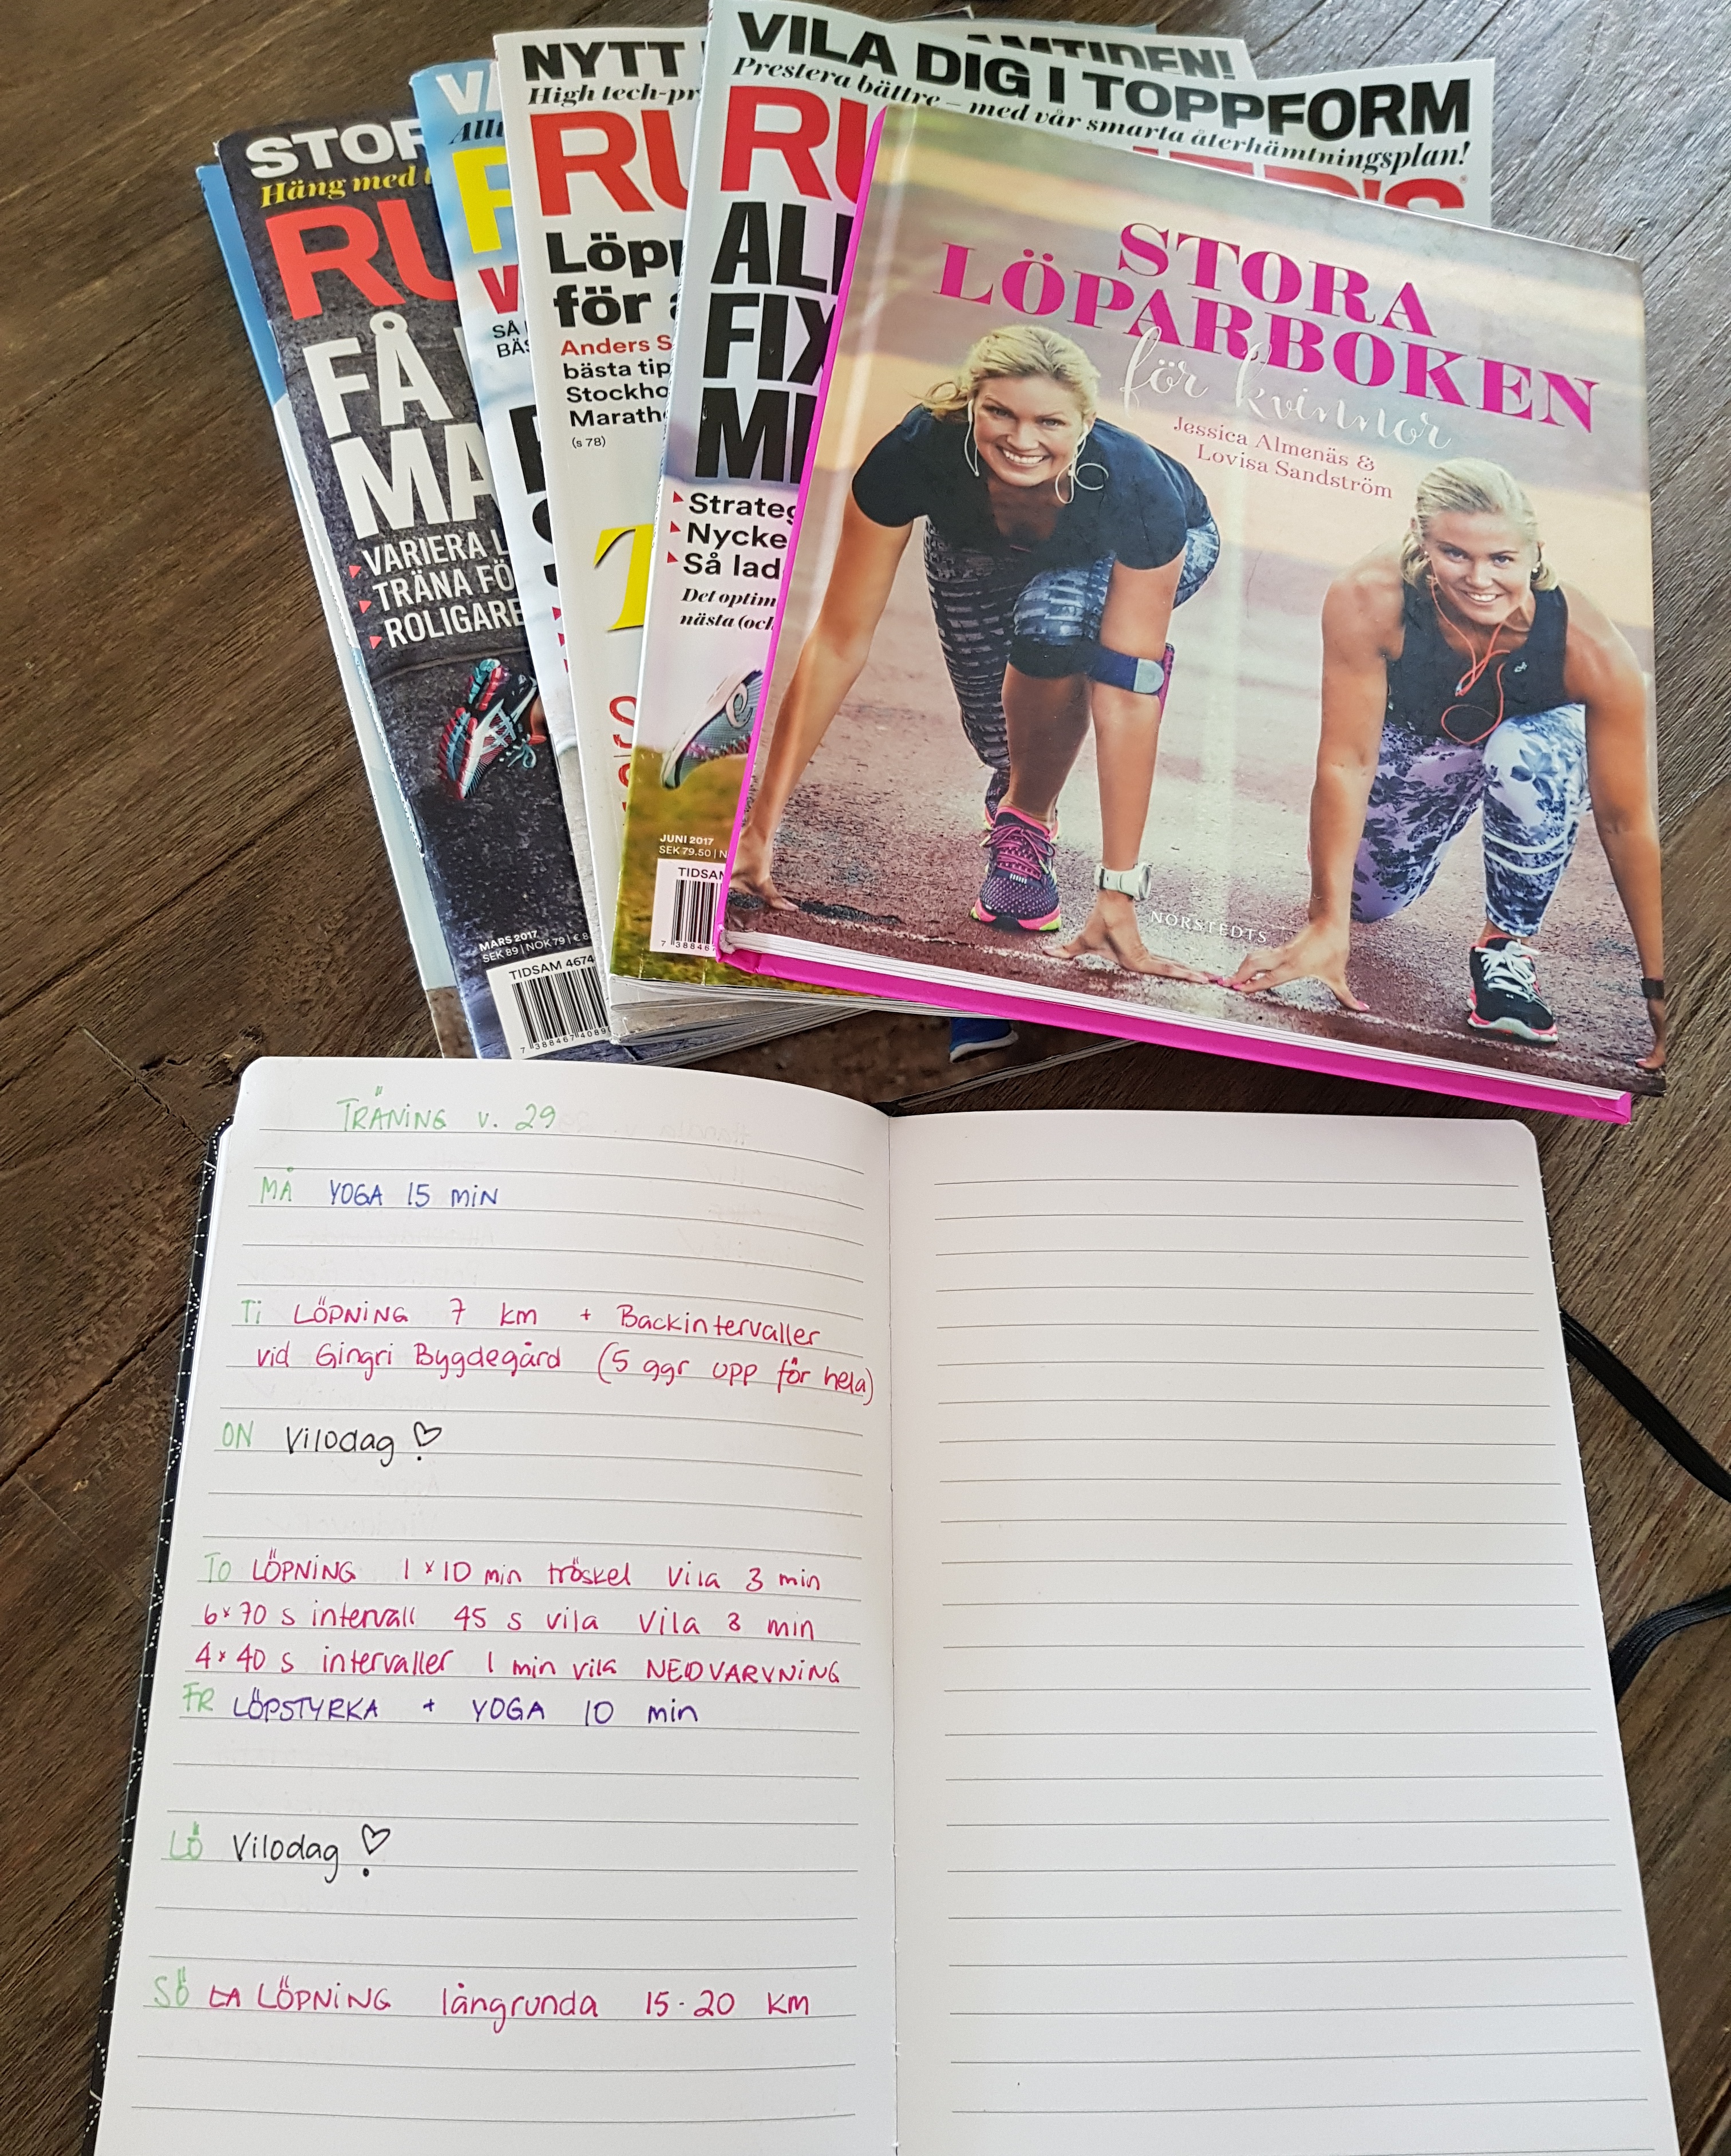 STOR
Häng med
RU
FÅ
MA
VARIERA L
TRÄNA FÖ
ROLIGARE
MARS 2017
SEK 89 | NOK 79 | € 8
TIDSAM 4674
7 388467 4089
VA
Allt
SÅ
BÄS
NYTT
High tech-pr
RU
Löp
för
Anders S
bästa tip
Stockho
Marath
(s 78)
T
AMTIDEN!
VILA DIG I TOPPFORM
Prestera bättre – med vår smarta återhämtningsplan!
RU ER'S
ALL
FIX
MI
Strateg
Nycke
Så lad
Det optim
nästa (och
JUNI 2017
SEK 79.50 | N
TIDSAM
7 388467
STORA
LÖPARBOKEN
för kvinnor
Jessica Almenäs &
Lovisa Sandström
NORSTEDTS
TRÄNING v. 29
MÅ YOGA 15 MIN
Ti LÖPNING 7 km + Backintervaller
vid Gingri Bygdegård (5 ggr upp för hela)
ON Vilodag
TO LÖPNING 1 x 10 min tröskel Vila 3 min
6x70 s intervall 45 s vila Vila 3 min
4x40 s intervaller 1 min vila NEDVARVNING
FR LÖPSTYRKA + YOGA 10 min
LÖ Vilodag
SÖ LÖPNING långrunda 15-20 KM